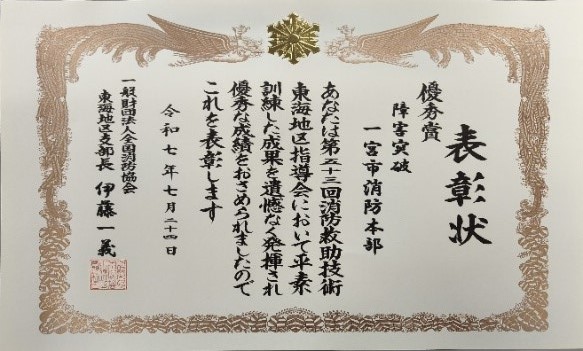 表彰状
優秀賞
障害突破
一宮市消防本部
あなたは第五十三回消防救助技術
東海地区指導会において平素
訓練した成果を遺憾なく発揮され
優秀な成績をおさめられましたので
これを表彰します
令和七年七月二十四日
一般財団法人全国消防協会
東海地区支部長 伊藤一義